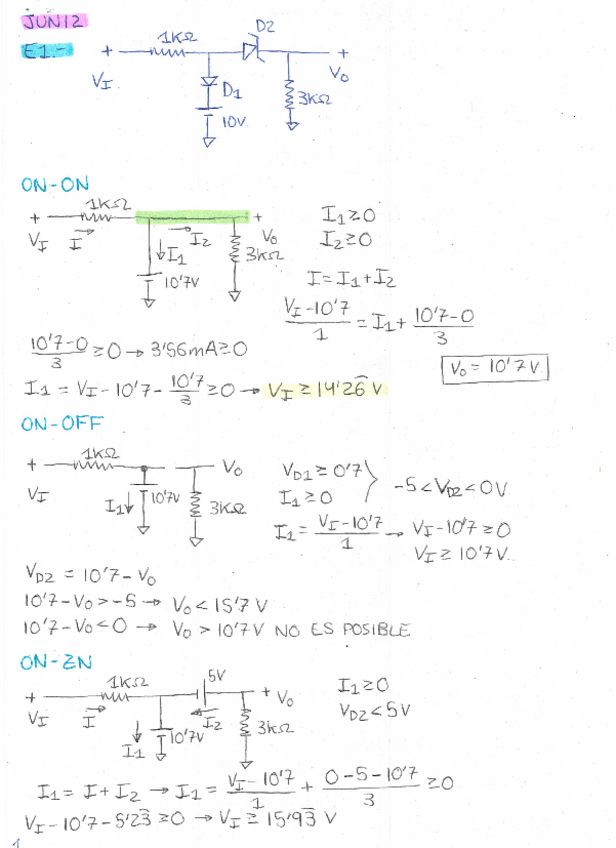 JUN12
E1.-
+ 1KΩ D2 +
V_I D1 V_O
10V 3KΩ
ON-ON
1KΩ
+ + I1≥0
V_I I I1 I2 V_O I2≥0
10'7V 3KΩ
I=I1+I2
(V_I-10'7)/1 = I1 + (10'7-0)/3
(10'7-0)/3 ≥0 → 3'56mA≥0
V_O = 10'7V.
I1 = V_I - 10'7 - 10'7/3 ≥0 → V_I ≥ 14'26 V
ON-OFF
1KΩ
+ V_O V_D1 ≥ 0'7
V_I I1 10'7V 3KΩ I1 ≥0 -5<V_D2<0V
I1 = (V_I-10'7)/1 → V_I-10'7≥0
V_I ≥ 10'7V.
V_D2 = 10'7 - V_O
10'7-V_O>-5 → V_O<15'7 V
10'7-V_O<0 → V_O > 10'7V NO ES POSIBLE
ON-ZN
1KΩ 5V
+ + V_O I1≥0
V_I I I1 10'7V I2 3KΩ V_D2<5V
I1 = I+I2 → I1 = (V_I-10'7)/1 + (0-5-10'7)/3 ≥0
V_I-10'7-5'23 ≥0 → V_I ≥ 15'93 V